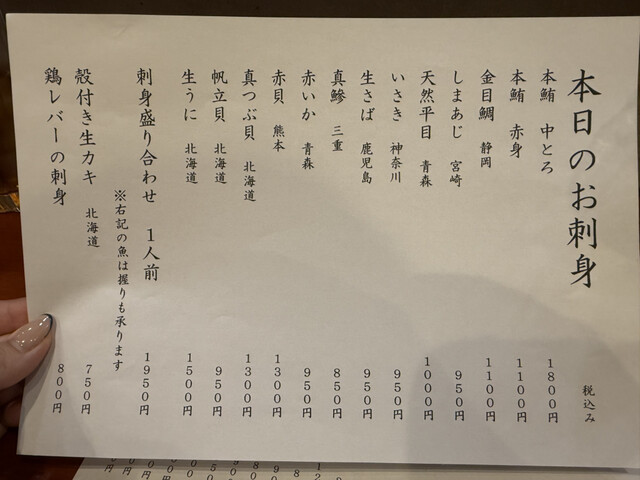 本日のお刺身
税込み
本鮪 中とろ 1800円
本鮪 赤身 1100円
金目鯛 静岡 1100円
しまあじ 宮崎 950円
天然平目 青森 1000円
いさき 神奈川 950円
生さば 鹿児島 950円
真鯵 三重 850円
赤いか 青森 950円
赤貝 熊本 1300円
真つぶ貝 北海道 1300円
帆立貝 北海道 950円
生うに 北海道 1500円
刺身盛り合わせ 1人前 1950円
※右記の魚は握りも承ります
殻付き生カキ 北海道 750円
鶏レバーの刺身 800円